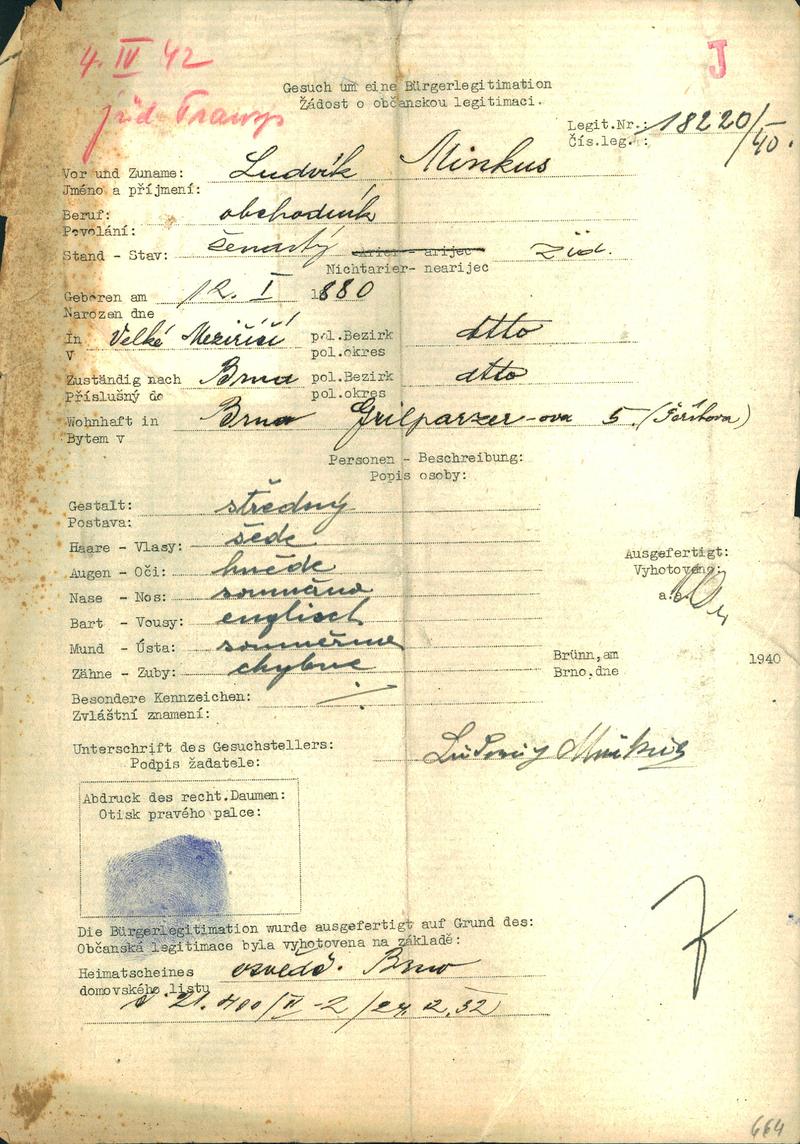 4. IV 42
J
žid. Transp.
Gesuch um eine Bürgerlegitimation
Žádost o občanskou legitimaci.
Legit.Nr.: 18220/40.
Čís.leg. :
Vor und Zuname: Ludvík Minkus
Jméno a příjmení:
Beruf: obchodník
Povolání:
Stand - Stav: ženatý Arier - arijec žid.
Nichtarier- nearijec
Geboren am 12. I 1880
Narozen dne
In Velké Meziříčí pol.Bezirk dtto
V pol.okres
Zuständig nach Brna pol.Bezirk dtto
Příslušný do pol.okres
Wohnhaft in Brna Grilparzer-ova 5.
Bytem v
Personen - Beschreibung:
Popis osoby:
Gestalt: středný
Postava:
Haare - Vlasy: šedé
Augen - Oči: hnědé
Nase - Nos: souměrný
Bart - Vousy: englisch
Mund - Ústa: souměrné
Zähne - Zuby: chybné
Ausgefertigt:
Vyhotoveno:
Brünn,am 1940
Brno,dne
Besondere Kennzeichen:
Zvláštní znamení:
Unterschrift des Gesuchstellers: Ludwig Minkus
Podpis žadatele:
Abdruck des recht.Daumen:
Otisk pravého palce:
Die Bürgerlegitimation wurde ausgefertigt auf Grund des:
Občanská legitimace byla vyhotovena na základě:
Heimatscheines osvědč. Brno
domovského listu
664